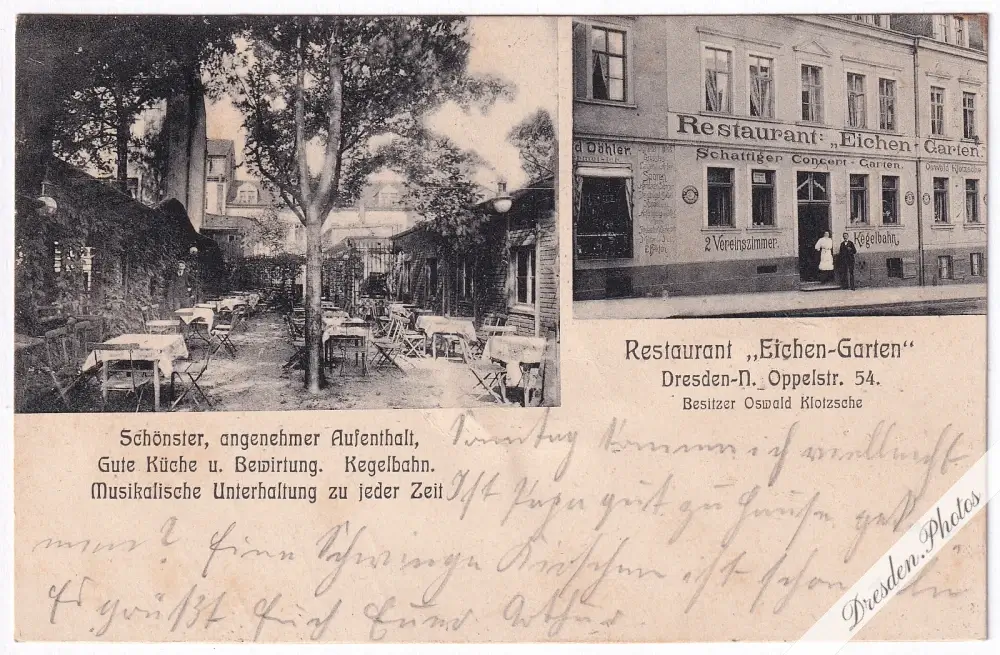 d Döhler
Restaurant: „Eichen-Garten.
Schattiger Concert-Garten.
Oswald Klotzsche
2 Vereinszimmer.
Kegelbahn.
Restaurant „Eichen-Garten"
Dresden-N. Oppelstr. 54.
Besitzer Oswald Klotzsche
Schönster, angenehmer Aufenthalt,
Gute Küche u. Bewirtung. Kegelbahn.
Musikalische Unterhaltung zu jeder Zeit
Sonntag komme ich vielleicht
Ist Papa gut zu Hause
? Eine Schwinge Kirschen ist schon
Es grüßt Euch Euer Arthur
Dresden.Photos